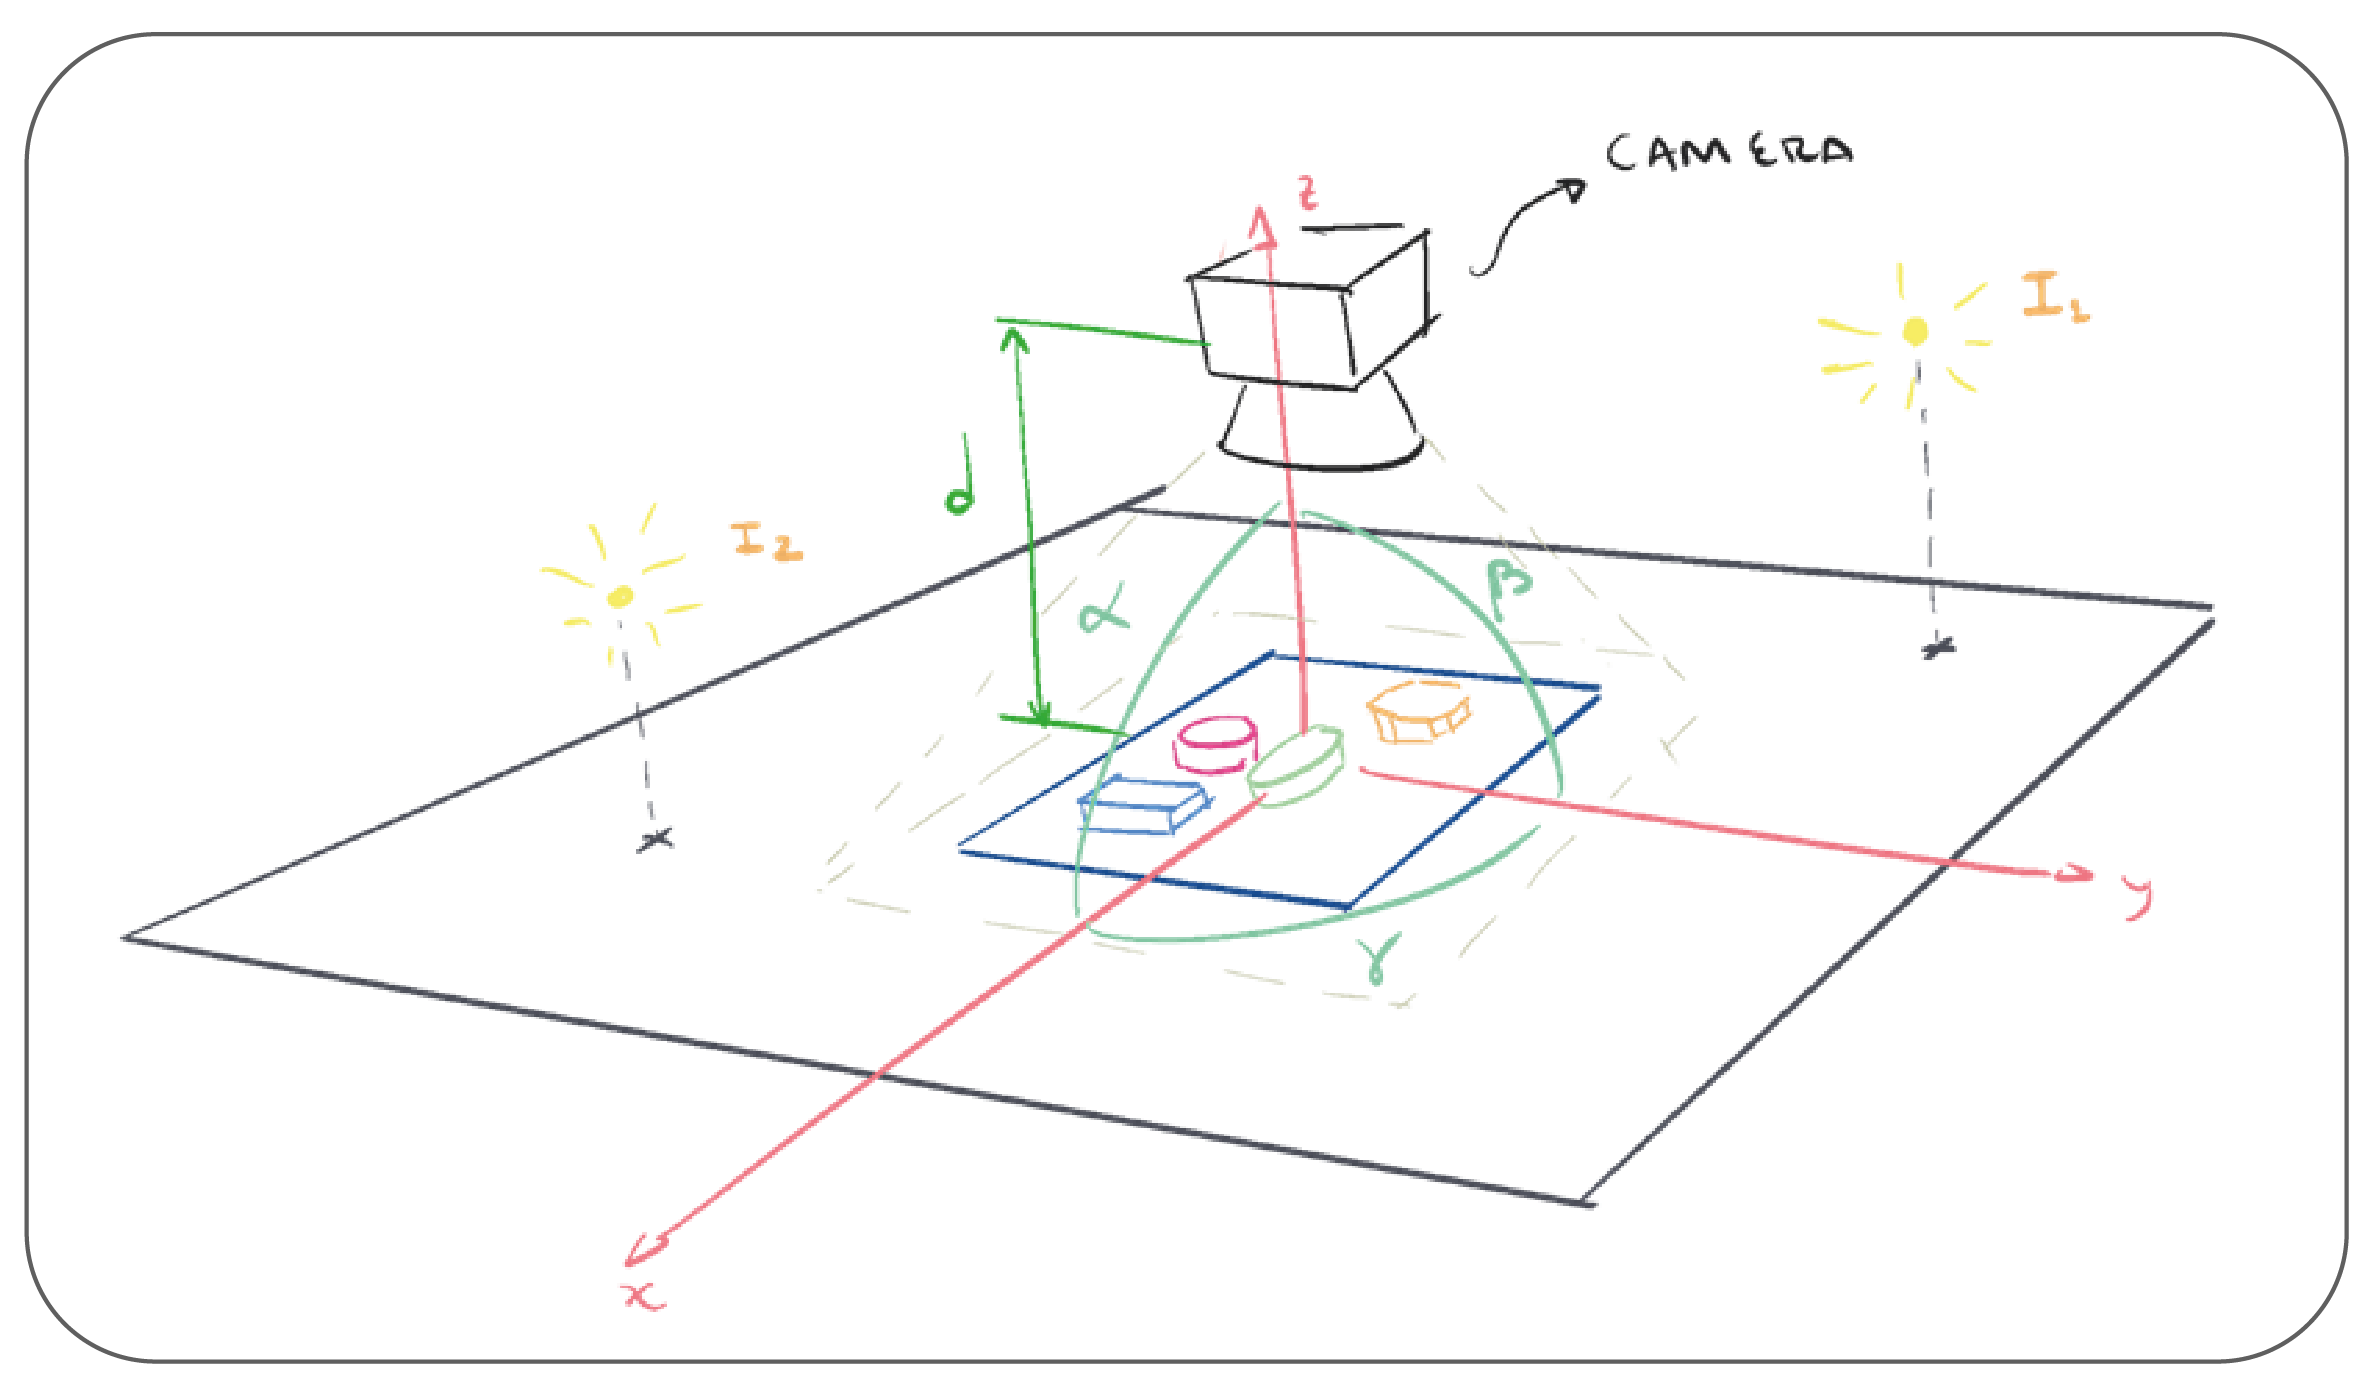 CAMERA
z
I1
d
I2
α
β
y
γ
x